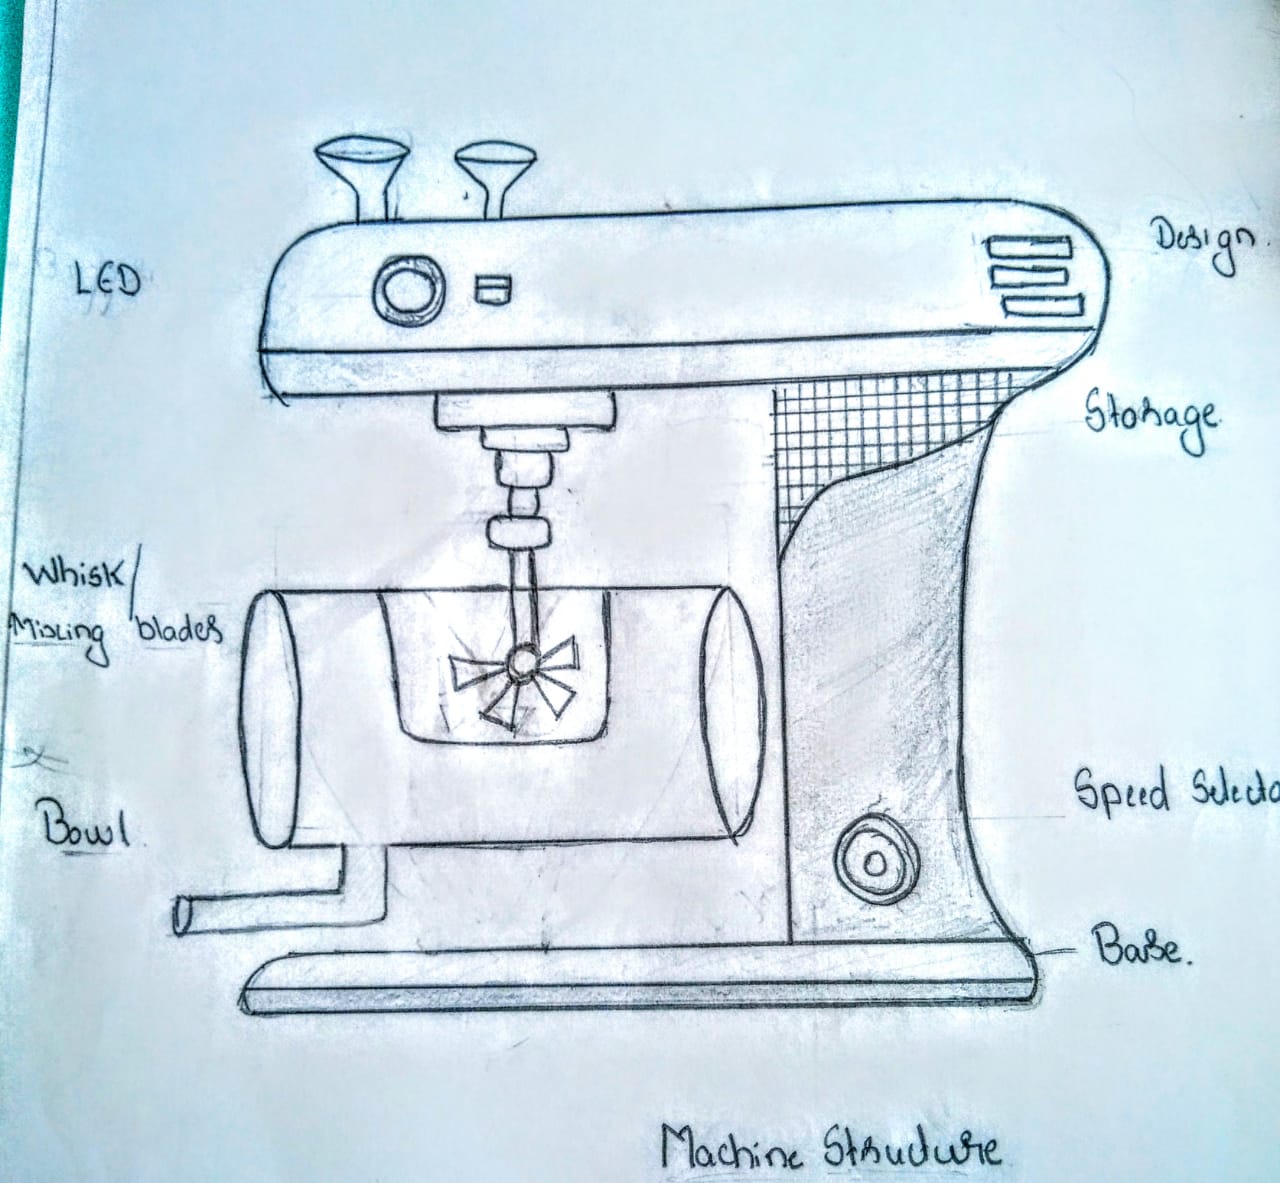 LED
Design.
Storage.
Whisk/
Mixing blades
Bowl.
Speed Selecto
Base.
Machine Structure